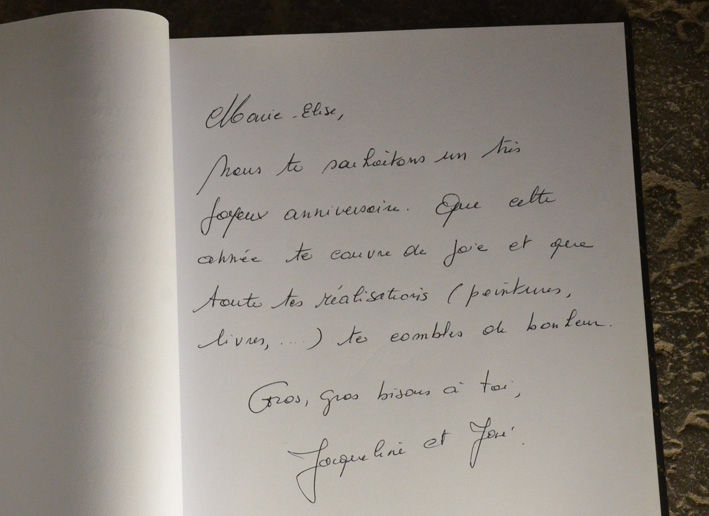 Marie-Elise,
Nous te souhaitons un très
Joyeux anniversaire. Que cette
année te couvre de Joie et que
toute tes réalisations (peintures,
livres, ...) te combles de bonheur.
Gros, gros bisous à toi,
Jacqueline et José.